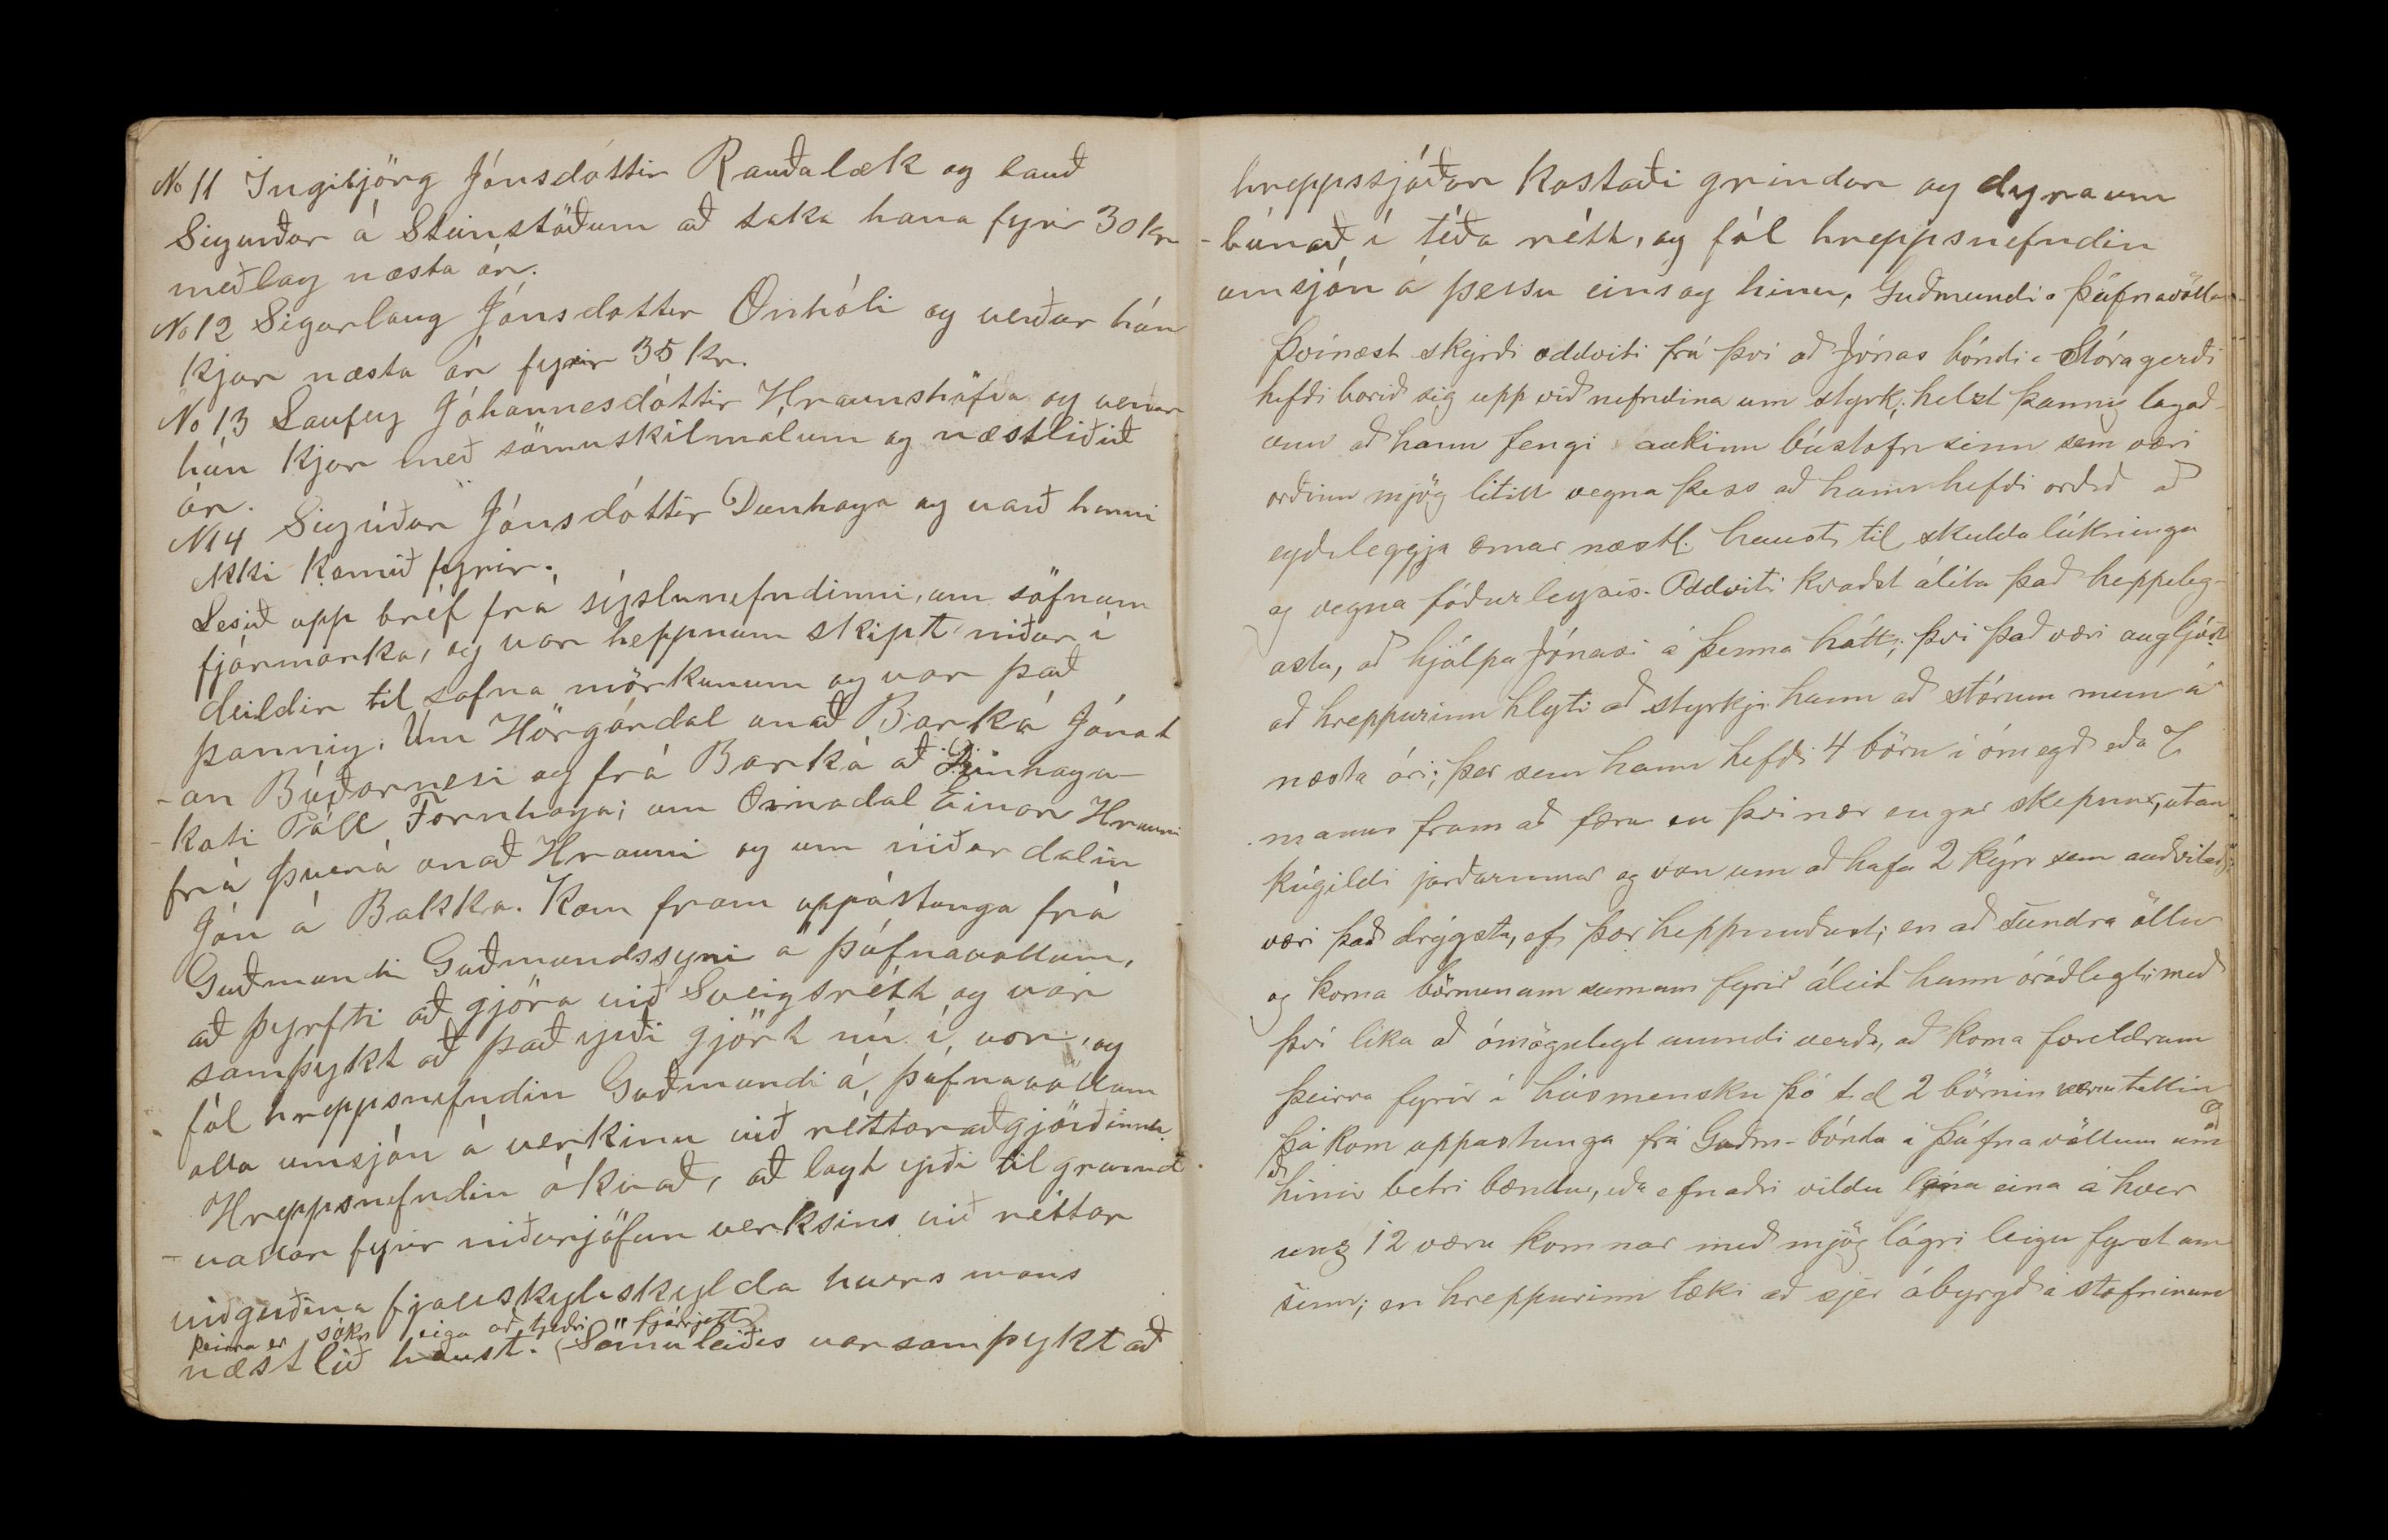 No 11 Ingibjörg Jónsdóttir Rauðalæk og bauð
Sigurður á Steinstöðum að taka hana fyrir 30 kr
meðlag næsta ár.
No 12 Sigurlaug Jónsdottir Öxnhóli og verður hún
kjur næsta ár fyrir 35 kr.
No 13 Laufey Jóhannesdóttir Hraunshöfða og verður
hún kjur með sömu skilmalum og næstliðið
ár.
N 14 Sigríður Jónsdóttir Dunhaga og varð henni
ekki komið fyrir.
Lesið upp bréf frá sýslunefndinni, um söfnum
fjármarka, og var heppnum skipt niður í
deildir til safna mörkunum og var það
þannig. Um Hörgárdal anað Barká Jónat
-an Búðarnesi og frá Barká að Dunhaga-
-koti Páll Fornhaga; um Öxnadal Einar Hrauni
frá Þverá anað Hrauni og um niður dalin
Jón á Bakka. Kom fram uppástunga frá
Guðmundi Guðmundssyni á Þúfnavollum,
að þyrfti að gjöra við Sveigsrétt og var
samþykt að það yrði gjört nú í vor, og
fól hreppsnefndin Guðmundi á Þúfnavöllum
alla umsjón á verkinu við réttaraðgjörðinna.
Hreppsnefndin ákvað, að lagt yrði til grund
-vallar fyrir niðurjöfun verksins við réttar
viðgerðina fjallskylaskylda hvers mans
þeirra er sókn eiga að tjeðri fjárrjett
næstlið haust. Sömuleiðis var samþykt að
hreppssjóður kostaði grindur og dyraum
-búnað í téða rétt, og fól hreppsnefndin
umsjón á þessu eins og hinu, Guðmundi á Þúfnavöllum
Þvínæst skýrði oddviti frá því að Jónas bóndi í Stóragerði
hefði borið sig upp við nefndina um styrk; helzt þannig lagað-
ann að hann fengi aukinn bústofn sinn sem væri
orðinn mjög lítill vegna þess að hann hefði orðið að
eyðileggja ærnar næstl. haust til skulda lúkninga
og vegna fóðurleysis. Oddviti kvaðst álíta það heppileg-
asta, að hjálpa Jónasi á þenna hátt; því það væri augljóst
að hreppurinn hlyti að styrkja hann að stórum mun á
næsta ári; þar sem hann hefði 4 börn í ómegð eða 7
manns fram að færa en því nær engar skepnur, utan
kúgildi jarðarinnar og von um að hafa 2 kýr sem auðvitað
væri það drýgsta, ef þær heppnuðust; en að sundra öllu
og koma börnunum sumum fyrir áleit hann óráðlegt; með
því líka að ómögulegt mundi verða, að koma foreldrum
þeirra fyrir í húsmensku þó t.d 2 börnin væru tekin
Þá kom uppastunga frá Guðm- bónda á Þúfnavöllum um að
hinir betri bændur, eða efnaðri vildu lána eina á hver
unz 12 væru komnar með mjög lágri leigu fyrst um
sinn; en hreppurinn tæki að sjer ábyrgð á stofninum